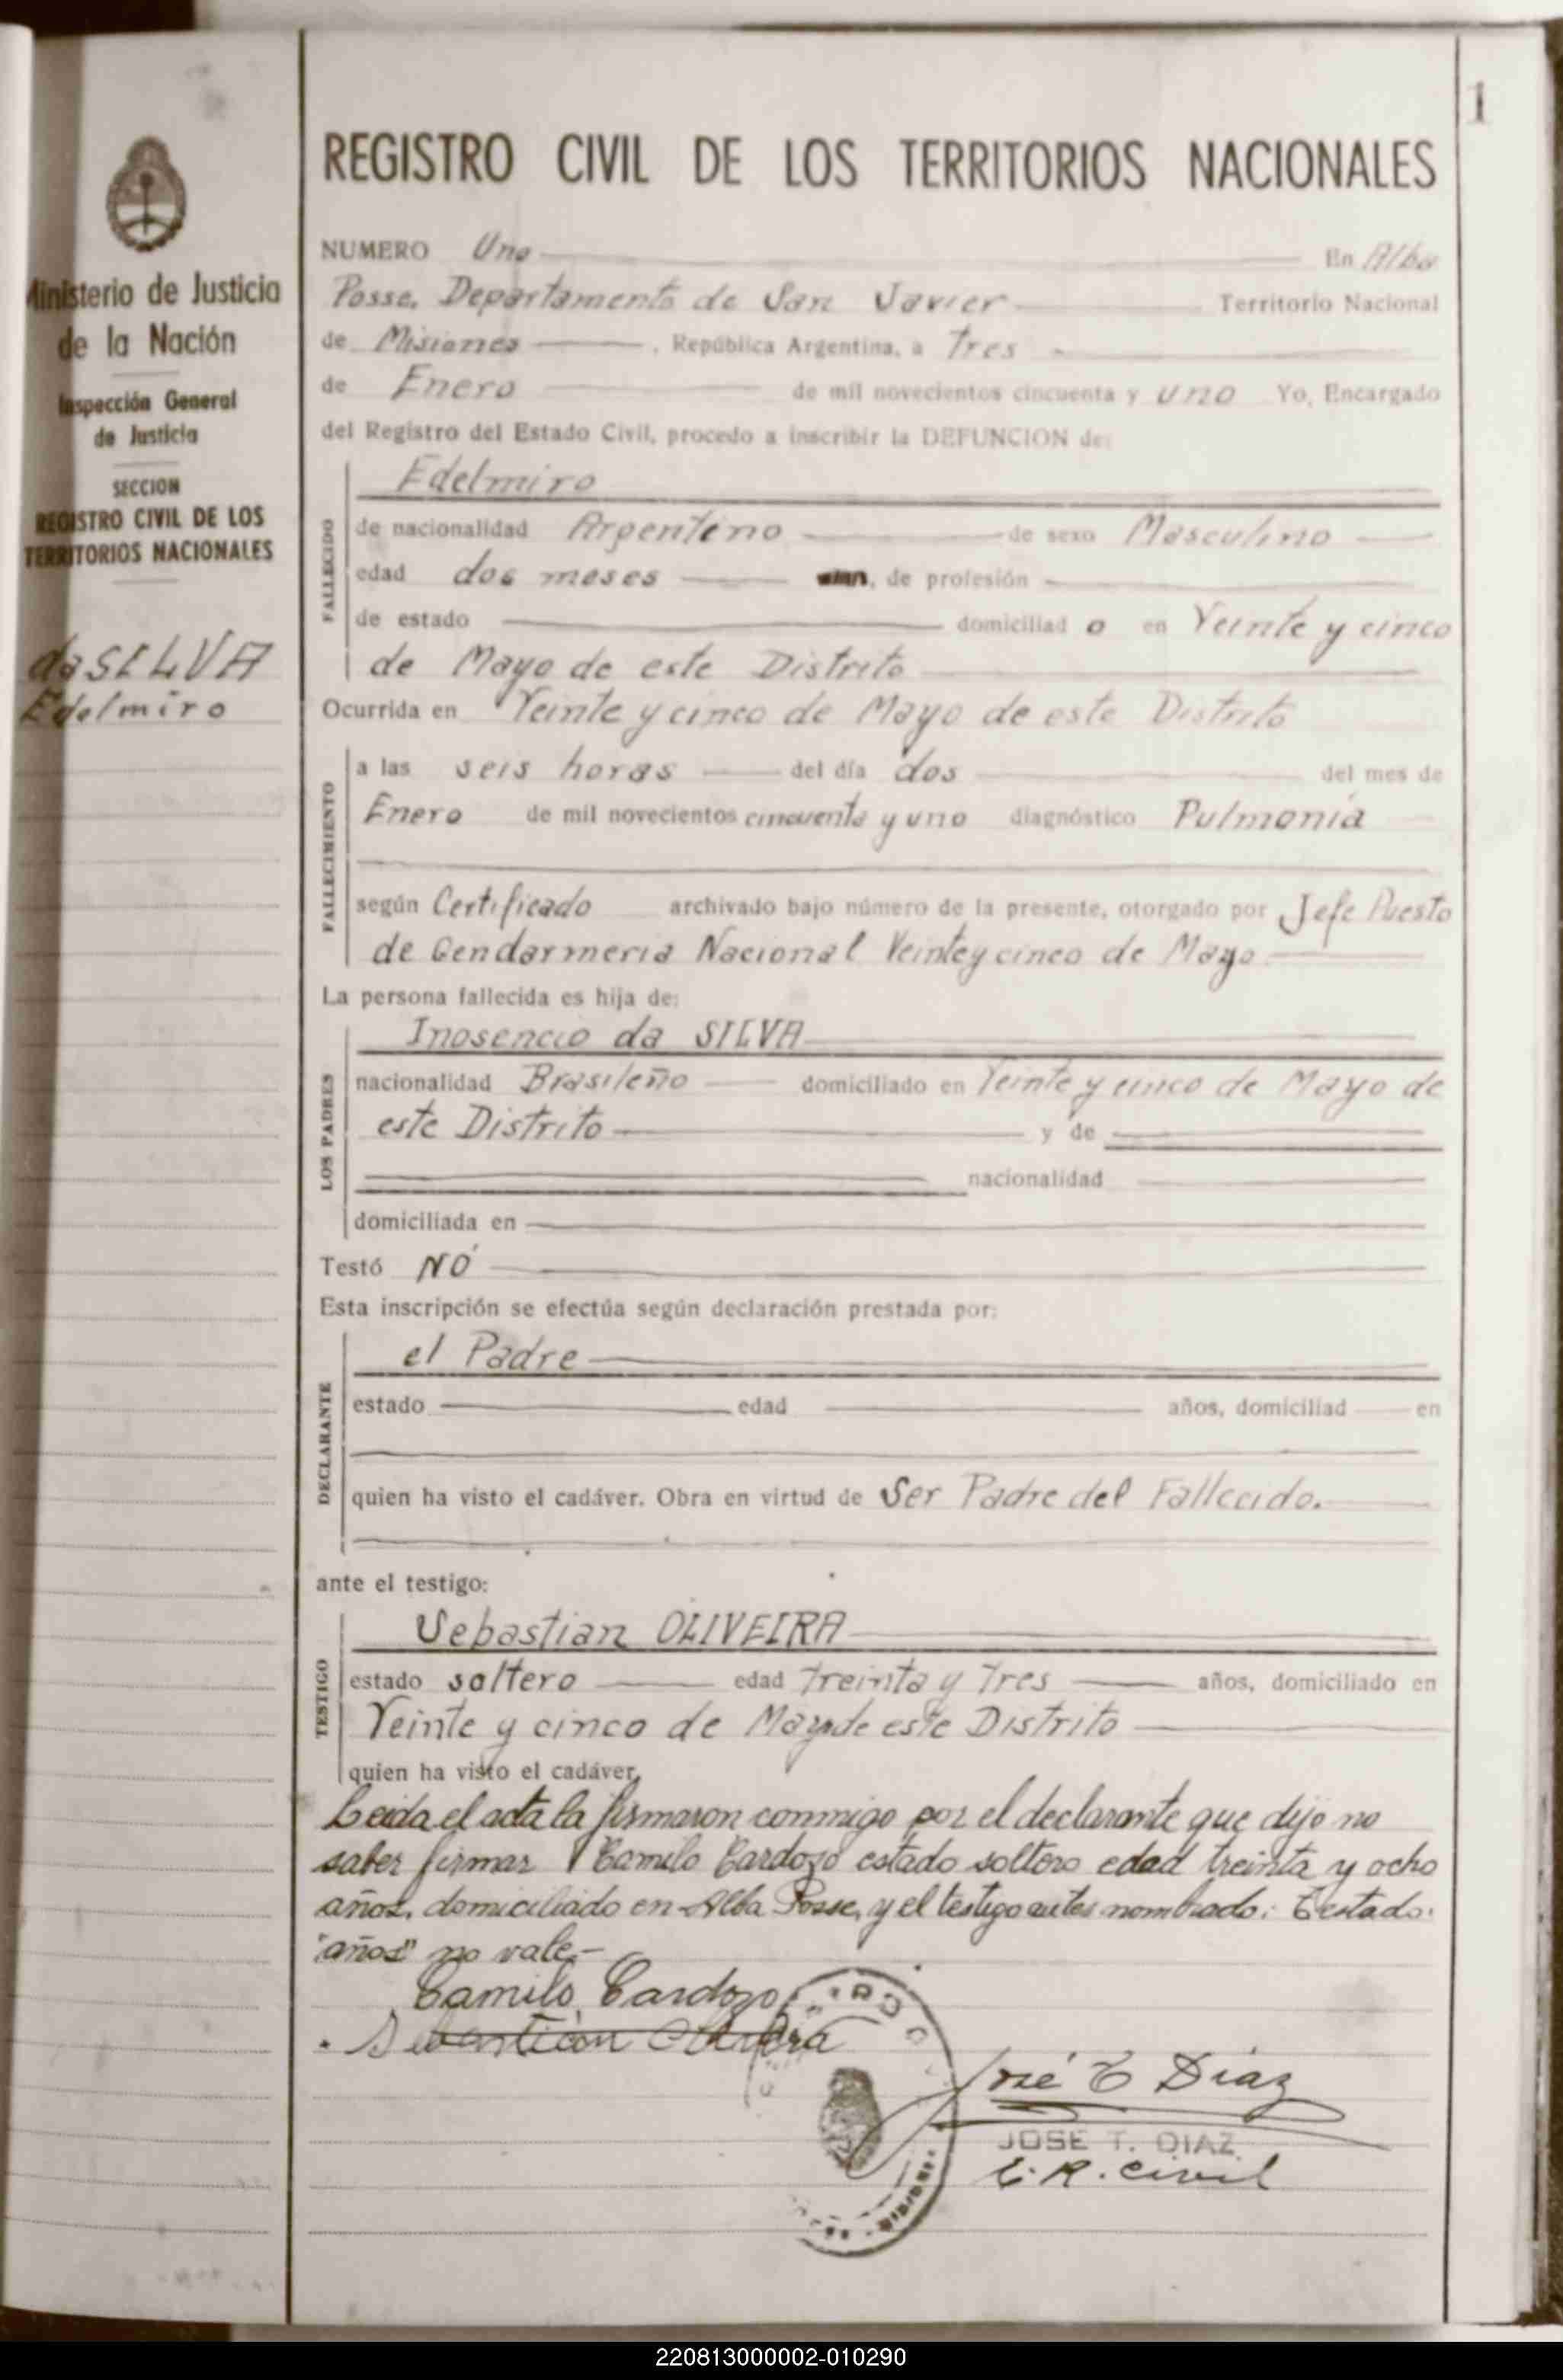 1
Ministerio de Justicia
de la Nación
Inspección General
de Justicia
SECCION
REGISTRO CIVIL DE LOS
TERRITORIOS NACIONALES
da SILVA
Edelmiro
REGISTRO CIVIL DE LOS TERRITORIOS NACIONALES
NUMERO Uno En Alba
Posse, Departamento de San Javier Territorio Nacional
de Misiones , República Argentina, a Tres
de Enero de mil novecientos cincuenta y uno Yo, Encargado
del Registro del Estado Civil, procedo a inscribir la DEFUNCION de:
FALLECIDO
Edelmiro
de nacionalidad Argentino de sexo Masculino
edad dos meses , de profesión
de estado domiciliad o en Veinte y cinco
de Mayo de este Distrito
Ocurrida en Veinte y cinco de Mayo de este Distrito
FALLECIMIENTO
a las seis horas del día dos del mes de
Enero de mil novecientos cincuenta y uno diagnóstico Pulmonía
según Certificado archivado bajo número de la presente, otorgado por Jefe Puesto
de Gendarmeria Nacional Veinte y cinco de Mayo
La persona fallecida es hija de:
LOS PADRES
Inosencio da SILVA
nacionalidad Brasileño domiciliado en Veinte y cinco de Mayo de
este Distrito y de
nacionalidad
domiciliada en
Testó NÓ
Esta inscripción se efectúa según declaración prestada por:
DECLARANTE
el Padre
estado edad años, domiciliad en
quien ha visto el cadáver. Obra en virtud de Ser Padre del Fallecido.
ante el testigo:
TESTIGO
Sebastian OLIVEIRA
estado soltero edad treinta y tres años, domiciliado en
Veinte y cinco de Mayo de este Distrito
quien ha visto el cadáver,
Leida el acta la firmaron conmigo por el declarante que dijo no
saber firmar Camilo Cardozo estado soltero edad treinta y ocho
años, domiciliado en Alba Posse, y el testigo antes nombrado: Testado:
"años" no vale.-
Camilo Cardozo
Sebastian
José T Diaz
JOSE T. DIAZ
E. R. Civil
220813000002-010290